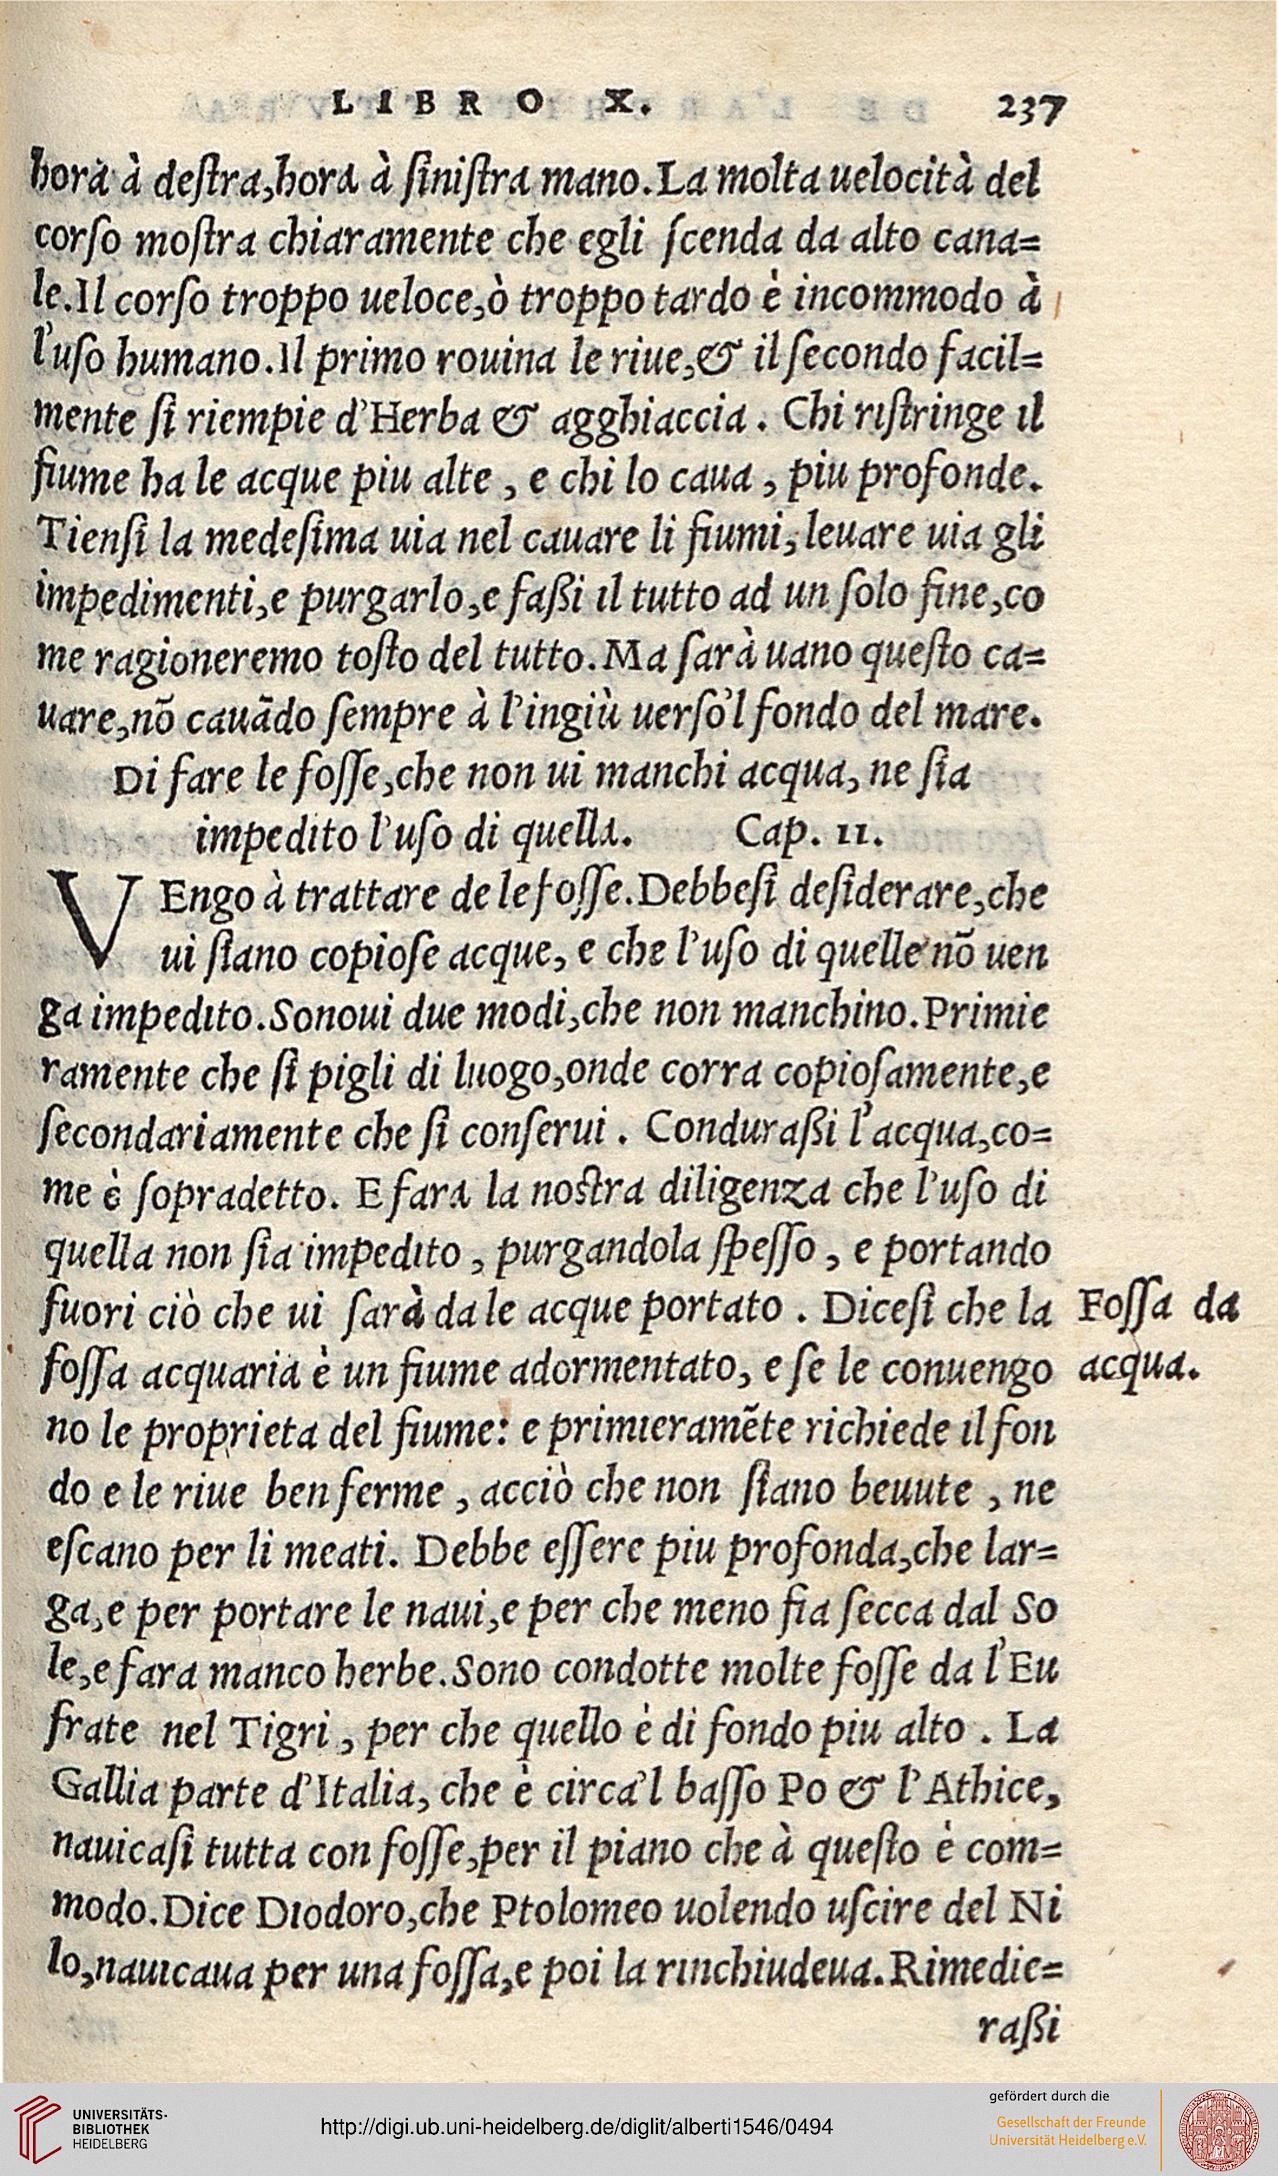 LIBRO X. 237
hora à deſtra,hora à ſiniſtra mano.La molta uelocità del
corſo moſtra chiaramente che egli ſcenda da alto cana=
le.Il corſo troppo ueloce,ò troppo tardo è incommodo à
l'uſo humano.Il primo rouina le riue,& il ſecondo facil=
mente ſi riempie d'Herba & agghiaccia. Chi riſtringe il
fiume ha le acque piu alte , e chi lo caua , piu profonde.
Tienſi la medeſima uia nel cauare li fiumi, leuare uia gli
impedimenti,e purgarlo,e faßi il tutto ad un ſolo fine,co
me ragioneremo toſto del tutto.Ma ſarà uano queſto ca=
uare,nõ cauãdo ſempre à l'ingiù uerſo'l fondo del mare.
Di fare le foſſe,che non ui manchi acqua, ne ſia
impedito l'uſo di quella. Cap. II.
VEngo à trattare de le foſſe.Debbeſi deſiderare,che
ui ſiano copioſe acque, e che l'uſo di quelle nõ uen
ga impedito.Sonoui due modi,che non manchino.Primie
ramente che ſi pigli di luogo,onde corra copioſamente,e
ſecondariamente che ſi conſerui . Conduraßi l'acqua,co=
me è ſopradetto. E fara la noſtra diligenza che l'uſo di
quella non ſia impedito , purgandola ſpeſſo , e portando
fuori ciò che ui ſarà da le acque portato . Diceſi che la
foſſa acquaria è un fiume adormentato, e ſe le conuengo
no le proprieta del fiume: e primieramẽte richiede il fon
do e le riue ben ferme , acciò che non ſiano beuute , ne
eſcano per li meati. Debbe eſſere piu profonda,che lar=
ga,e per portare le naui,e per che meno fia ſecca dal So
le,e fara manco herbe.Sono condotte molte foſſe da l'Eu
frate nel Tigri , per che quello è di fondo piu alto . La
Gallia parte d'Italia, che è circa'l baſſo Po & l'Athice,
nauicaſi tutta con foſſe,per il piano che à queſto è com=
modo.Dice Diodoro,che Ptolomeo uolendo uſcire del Ni
lo,nauicaua per una foſſa,e poi la rinchiudeua.Rimedie=
raßi
Foſſa da
acqua.
UNIVERSITÄTS-
BIBLIOTHEK
HEIDELBERG
http://digi.ub.uni-heidelberg.de/diglit/alberti1546/0494
gefördert durch die
Gesellschaft der Freunde
Universität Heidelberg e.V.